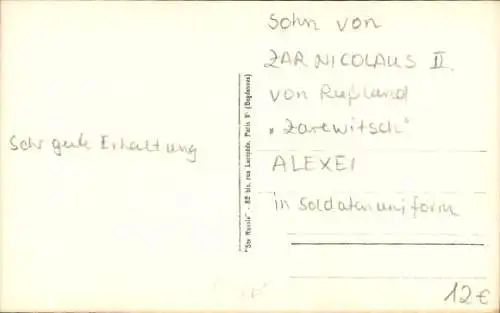 Sehr gute Erhaltung
"Ste Russie" - 82 bis, rue Lacépède, Paris 5e (Deposée)
Sohn von
ZAR NICOLAUS II.
von Rußland
"Zarewitsch"
ALEXEI
in Soldatenuniform
12€